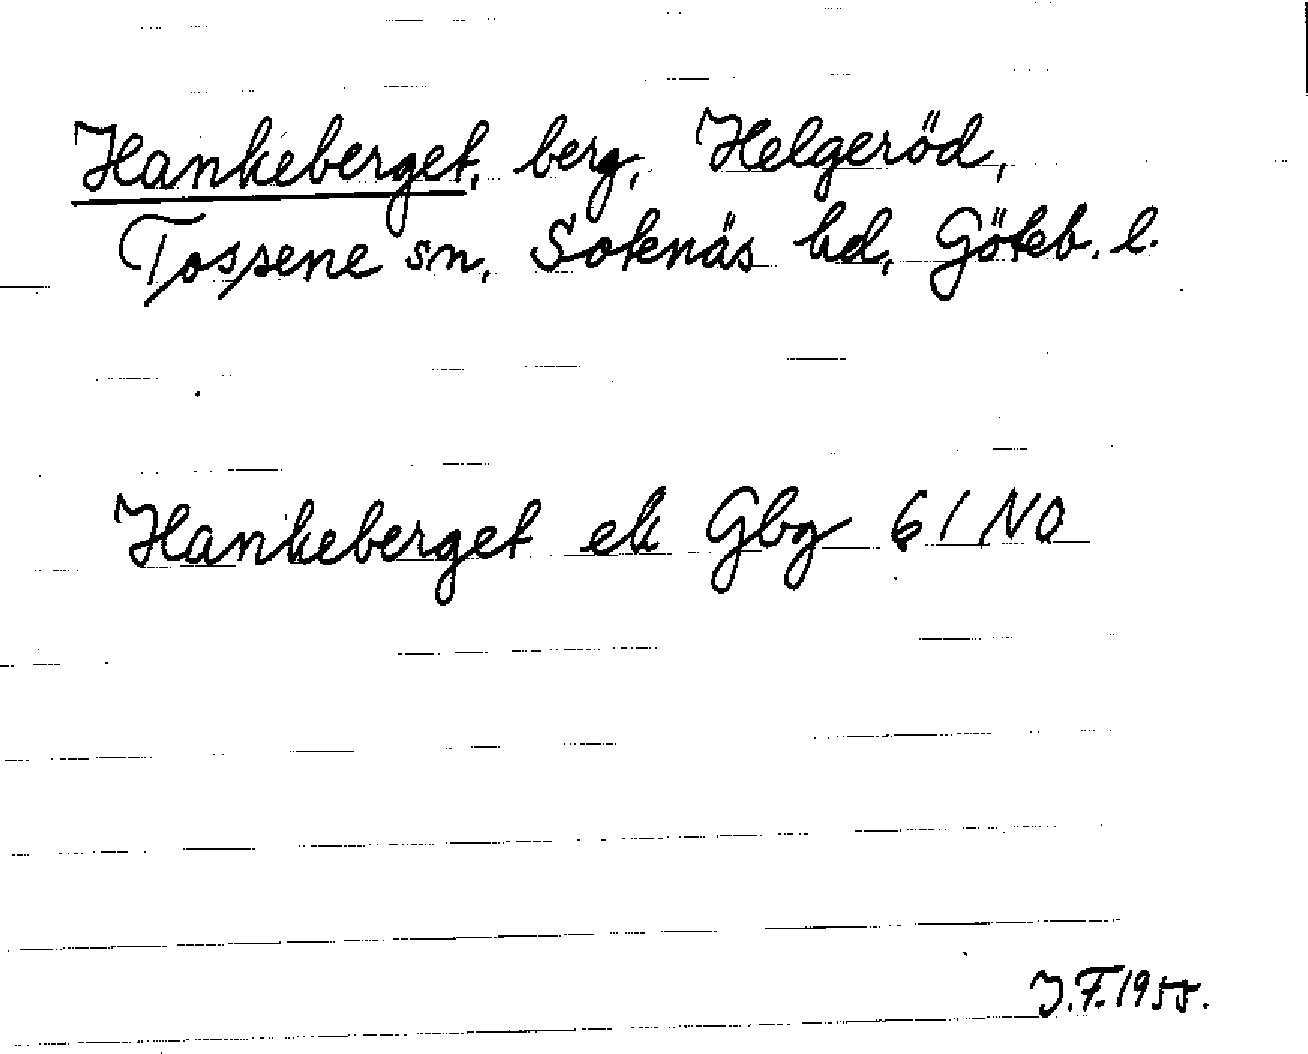 Hankeberget, berg, Helgeröd,
Tossene sn, Sotenäs hd, Göteb. l.
Hankeberget ek Gbg 61 NO
J.F. 1955.